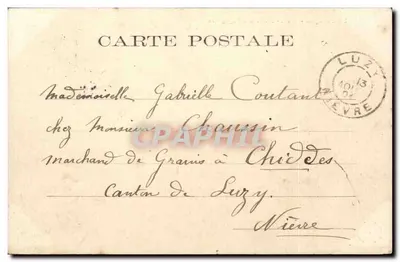 CARTE POSTALE
LUZY
13
NIÈVRE
Mademoiselle Gabrielle Coutant
chez Monsieur Chaussin
marchand de Grains à Chiddes
Canton de Luzy.
Nièvre